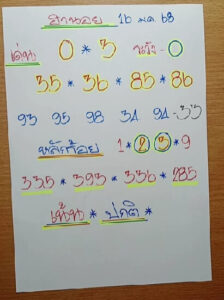 ฮานอย 16 ม.ค 68
เด่น 0 * 3 หวัง - 0
35 * 36 * 85 * 86
93 95 98 34 94 - 33
หลักร้อย 1 * 2 3 * 9
335 * 393 * 336 * 285
เน้น * ปกติ *